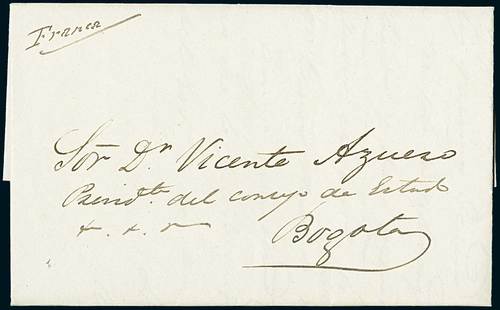 Franca
Sõr Dr Vicente Azuero
Presidte del consejo de Estado
&. &. &
Bogota